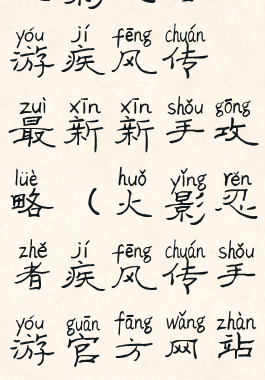 yóu jí fēng chuán
游疾风传
zuì xīn xīn shǒu gōng
最新新手攻
lüè huǒ yǐng rěn
略（火影忍
zhě jí fēng chuán shǒu
者疾风传手
yóu guān fāng wǎng zhàn
游官方网站